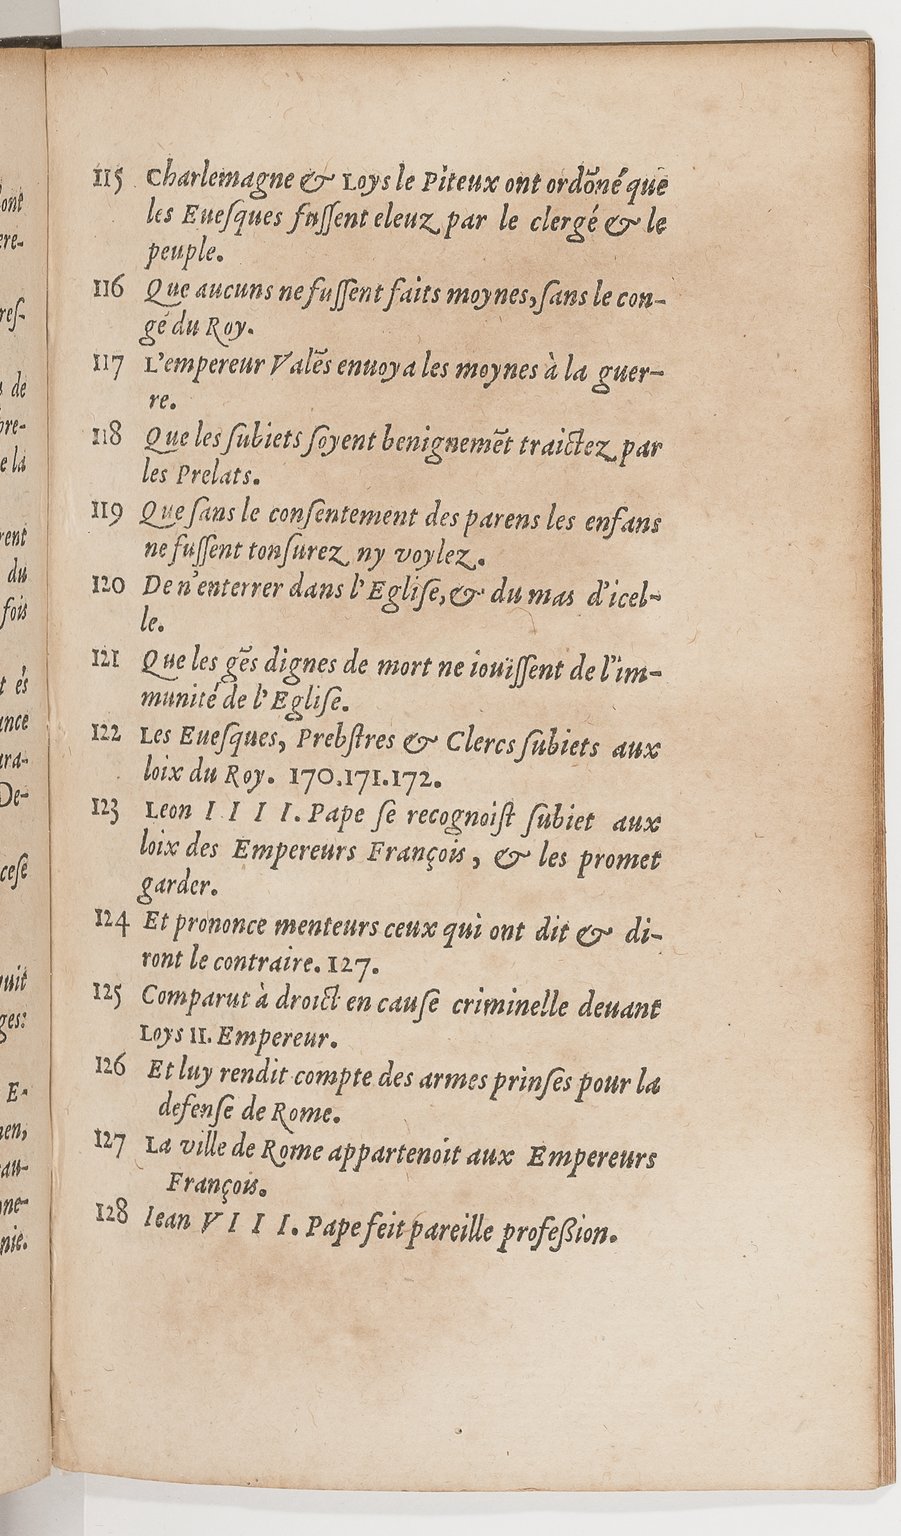 115 Charlemagne & Loys le Piteux ont ordõné que
les Euesques fussent eleuz par le clergé & le
peuple.
116 Que aucuns ne fussent faits moynes, sans le con-
gé du Roy.
117 L'empereur Valẽs enuoya les moynes à la guer-
re.
118 Que les subiets soyent benignemẽt traictez par
les Prelats.
119 Que sans le consentement des parens les enfans
ne fussent tonsurez ny voylez.
120 De n'enterrer dans l'Eglise, & du mas d'icel-
le.
121 Que les gẽs dignes de mort ne iouïssent de l'im-
munité de l'Eglise.
122 Les Euesques, Prebstres & Clercs subiets aux
loix du Roy. 170.171.172.
123 Leon I I I I. Pape se recognoist subiet aux
loix des Empereurs François, & les promet
garder.
124 Et prononce menteurs ceux qui ont dit & di-
ront le contraire. 127.
125 Comparut à droict en cause criminelle deuant
Loys II. Empereur.
126 Et luy rendit compte des armes prinses pour la
defense de Rome.
127 La ville de Rome appartenoit aux Empereurs
François.
128 Iean V I I I. Pape feit pareille profession.